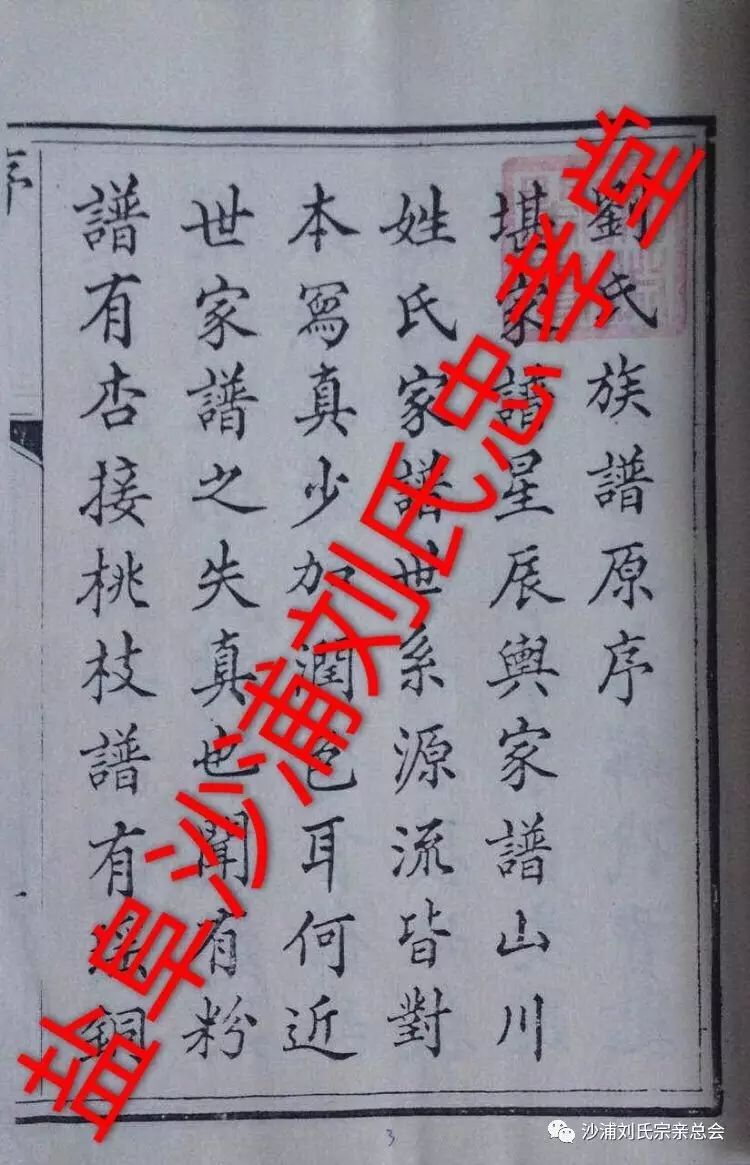 劉氏族譜原序
堪家譜星辰輿家譜山川
姓氏家譜世系源流皆對
本寫真少加潤色耳何近
世家譜之失真也聞有粉
譜有杏接桃枝譜有銅
盐阜沙浦刘氏忠孝堂
3
沙浦刘氏宗亲总会